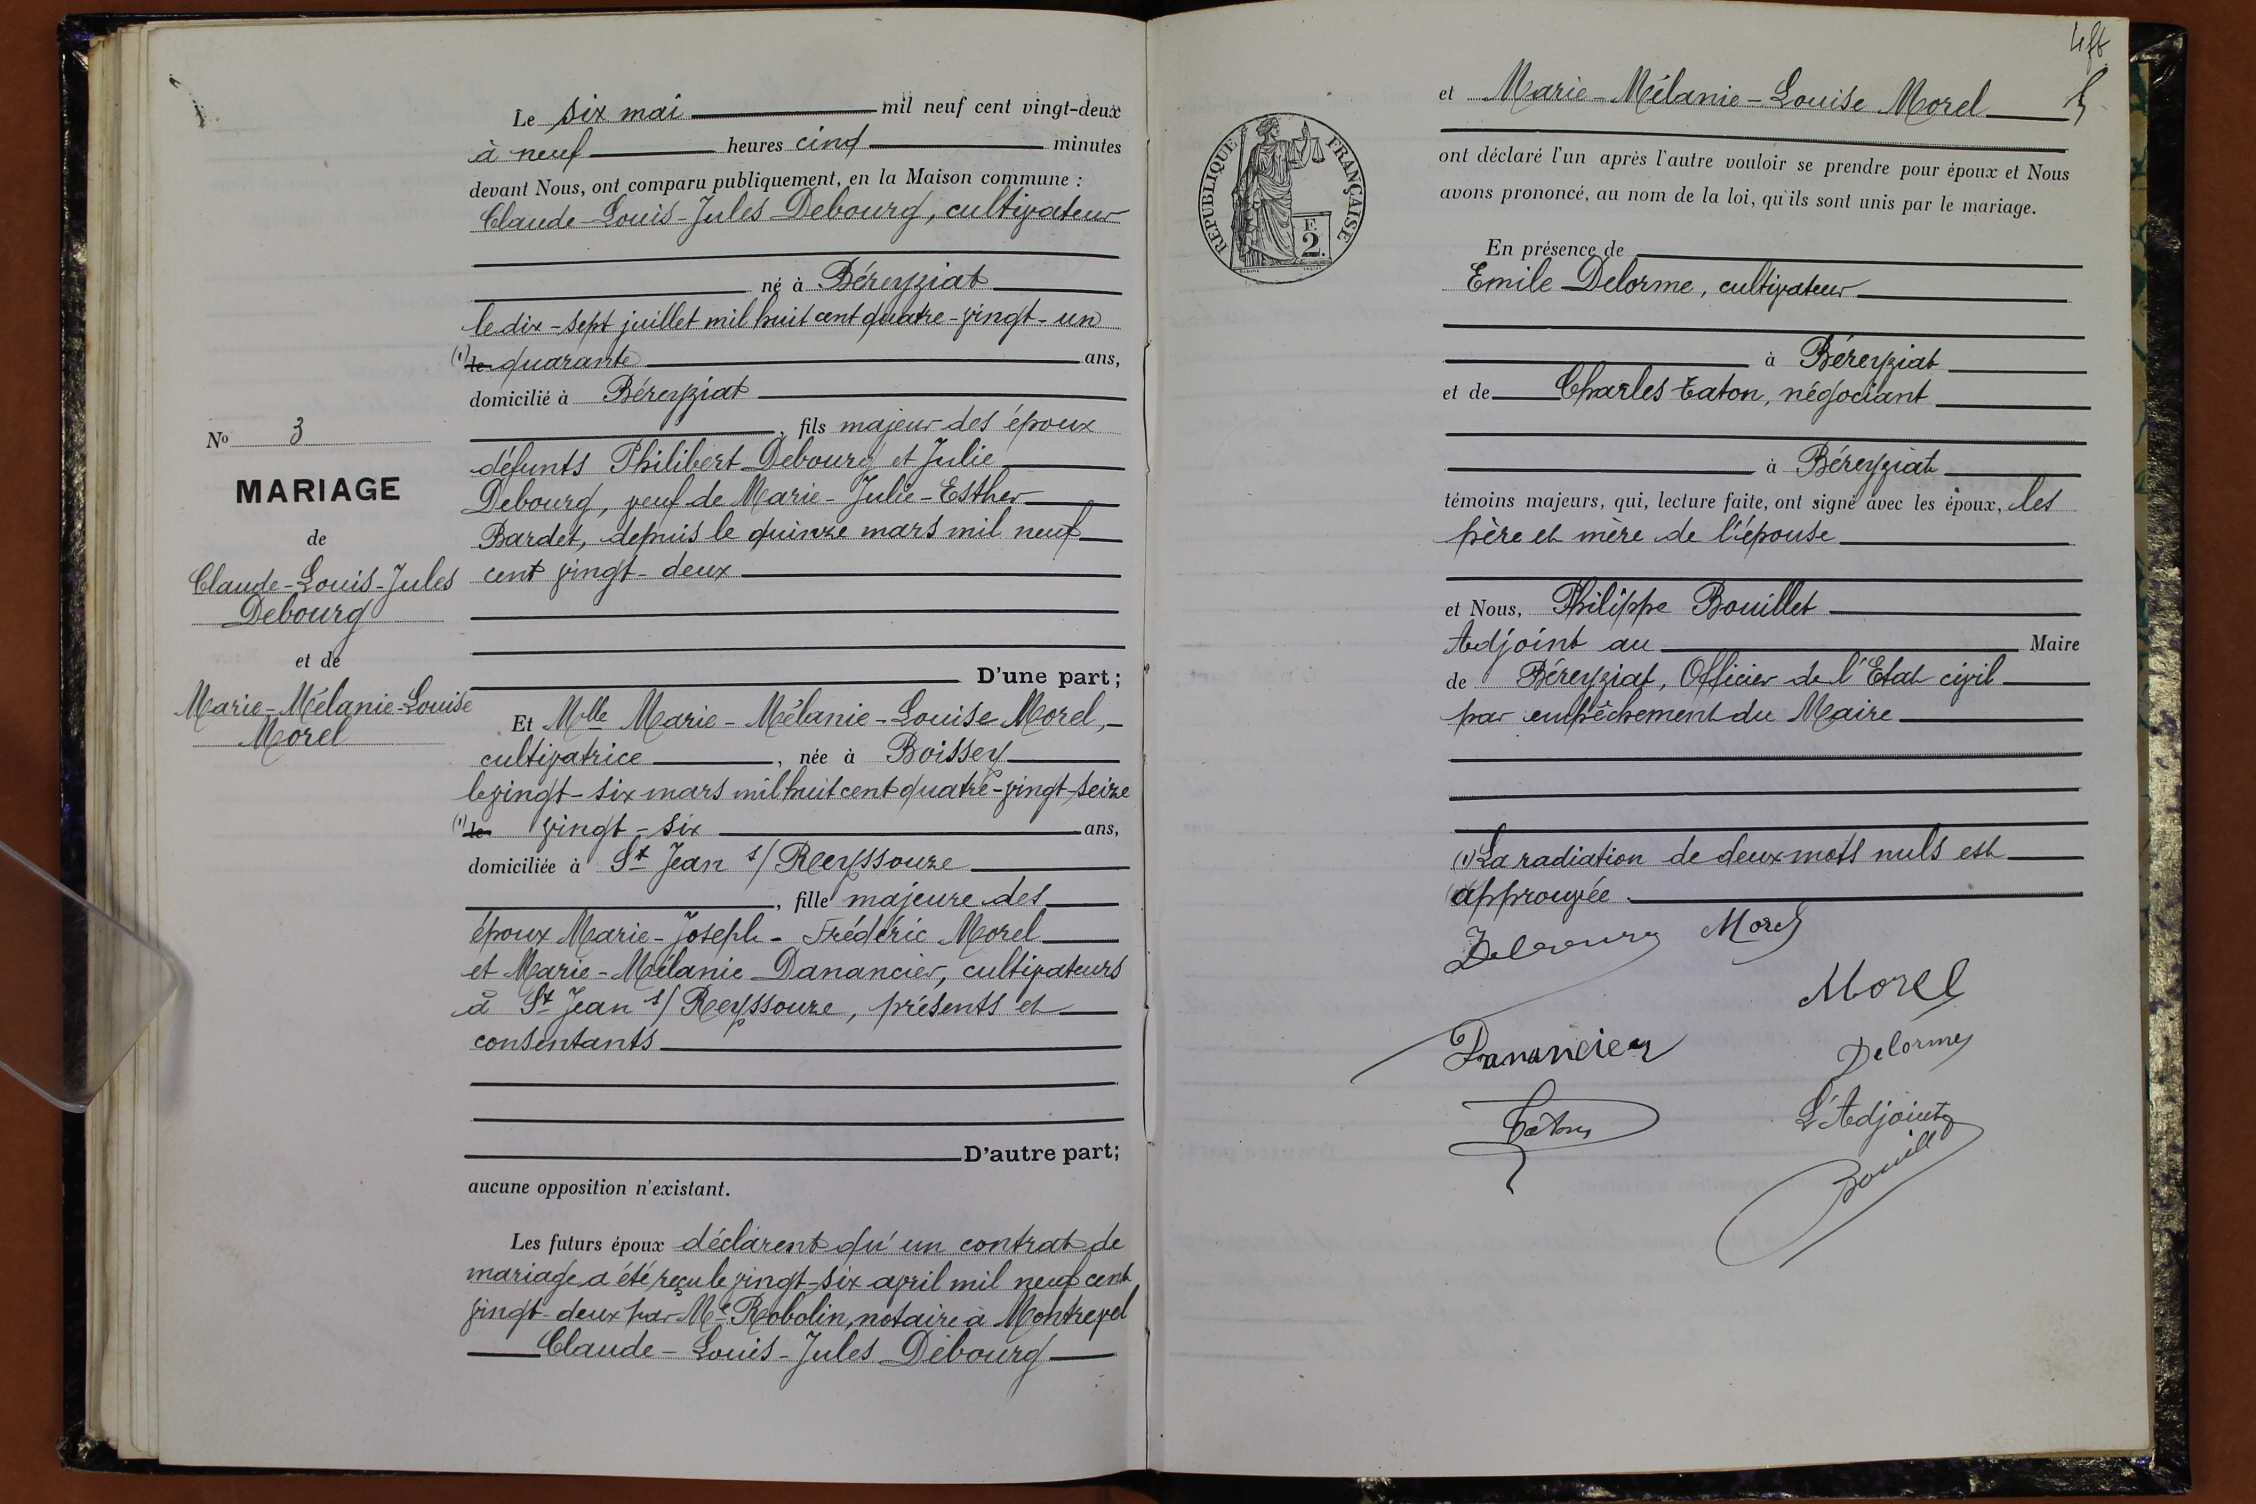 Le six mai mil neuf cent vingt-deux
à neuf heures cinq minutes
devant Nous, ont comparu publiquement, en la Maison commune :
Claude-Louis-Jules Debourg, cultivateur
né à Béreyziat
le dix-sept juillet mil huit cent quatre-vingt-un
(1) le quarante ans,
domicilié à Béreyziat
, fils majeur des époux
défunts Philibert Debourg et Julie
Debourg, veuf de Marie-Julie-Esther
Bardet, depuis le quinze mars mil neuf
cent vingt-deux
D'une part;
No 3
MARIAGE
de
Claude-Louis-Jules
Debourg
et de
Marie-Mélanie-Louise
Morel
Et Mlle Marie-Mélanie-Louise Morel,
cultivatrice, née à Boissey
le vingt-six mars mil huit cent quatre-vingt-seize
(1) le vingt-six ans,
domiciliée à St Jean s/ Reyssouze
, fille majeure des
époux Marie-Joseph-Frédéric Morel
et Marie-Mélanie Danancier, cultivateurs
à St Jean s/ Reyssouze, présents et
consentants
D'autre part;
aucune opposition n'existant.
Les futurs époux déclarent qu'un contrat de
mariage a été reçu le vingt-six avril mil neuf cent
vingt-deux par Me Robolin, notaire à Montrevel
Claude-Louis-Jules Debourg
et Marie-Mélanie-Louise Morel
RÉPUBLIQUE FRANÇAISE
F.
2.
ont déclaré l'un après l'autre vouloir se prendre pour époux et Nous
avons prononcé, au nom de la loi, qu'ils sont unis par le mariage.
En présence de
Emile Delorme, cultivateur
à Béreyziat
et de Charles Caton, négociant
à Béreyziat
témoins majeurs, qui, lecture faite, ont signé avec les époux, les
père et mère de l'épouse
et Nous, Philippe Bouillet
Adjoint au Maire
de Béreyziat, Officier de l'Etat civil
par empêchement du Maire
(1) La radiation de deux mots nuls est
approuvée
Debourg Morel
Morel
Danancier
Delorme
Caton
L'Adjoint
Bouillet